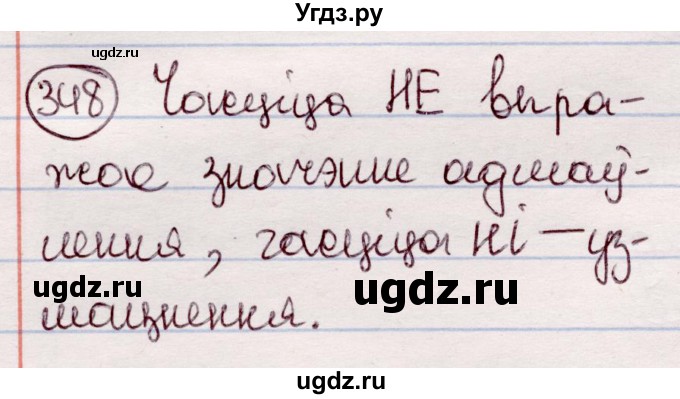 Угдз.ру
ugdz.ru
348 Часціца НЕ выра-
жае значэнне адмаў-
лення, часціца НІ — уз-
ugdz.ru
ugdz.ru
мацнення.
ugdz.ru